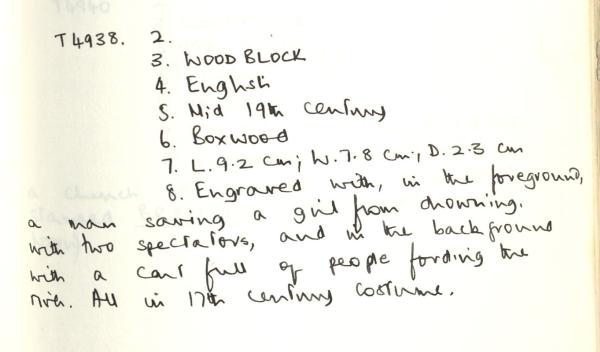 T4938. 2.
3. WOOD BLOCK
4. English
5. Mid 19th century
6. Boxwood
7. L.9.2 cm; W.7.8 cm; D.2.3 cm
8. Engraved with, in the foreground,
a man saving a girl from drowning.
with two spectators, and in the background
with a cart full of people fording the
river. All in 17th century costume.